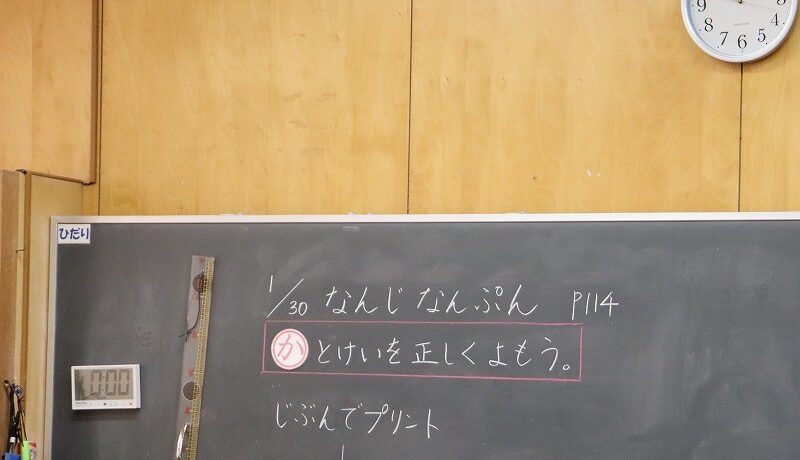 9
8
7
6
5
4
ひだり
1/30 なんじ なんぷん P114
か とけいを正しくよもう。
0:00
じぶんでプリント